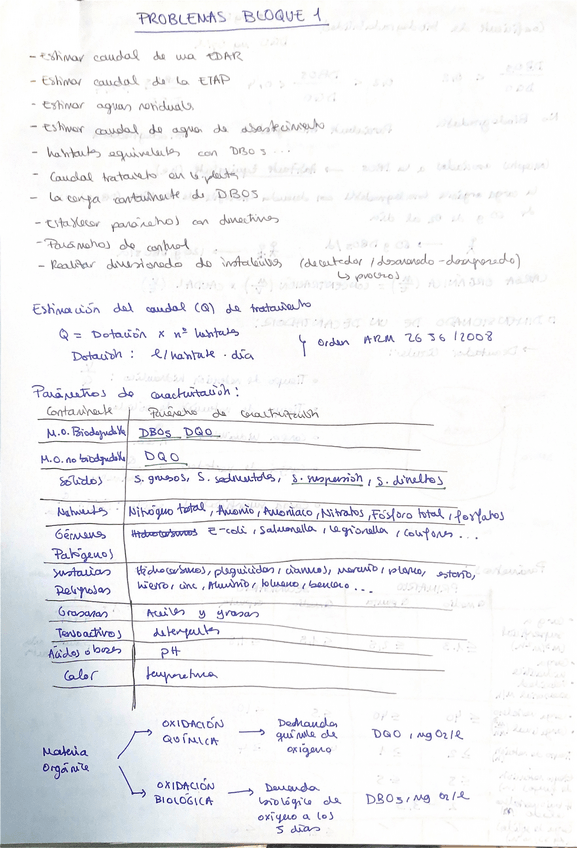 PROBLEMAS BLOQUE 1
- Estimar caudal de una EDAR
- Estimar caudal de la ETAP
- Estimar aguas residuales
- Estimar caudal de agua de abastecimiento
- habitantes equivalentes con DBO5...
- Caudal tratamiento en la planta
- La carga contaminante de DBO5
- Establecer parámetros con directivas
- Parámetros de control
- Realizar dimensionado de instalaciones (decantador / desarenado - desengrasado)
↳ procesos
Estimación del caudal (Q) de tratamiento
Q = Dotación x nº habitantes
Dotación : l/habitante · día
orden ARM 2656/2008
Parámetros de caracterización:
Contaminante Parámetro de caracterización
M.O. Biodegradable DBO5 DQO
M.O. no biodegradable DQO
Sólidos S. gruesos, S. sedimentables, S. suspensión, S. disueltos
Nutrientes Nitrógeno total, Amonio, Amoniaco, Nitratos, Fósforo total, fosfatos
Gérmenes Patógenos Hidrocarburos E-coli, Salmonella, legionella, coliformes...
Sustancias Peligrosas Hidrocarburos, pleguicidas, cianuros, mercurio, plomo, estaño,
hierro, cinc, Aluminio, tolueno, benceno...
Grasas Aceites y grasas
Tensoactivos detergentes
Acidos o bases pH
Calor temperatura
Materia Orgánica
→ OXIDACIÓN QUÍMICA → Demanda química de oxígeno DQO, mg O2/l
→ OXIDACIÓN BIOLÓGICA → Demanda biológica de oxígeno a los 5 días DBO5, mg O2/l